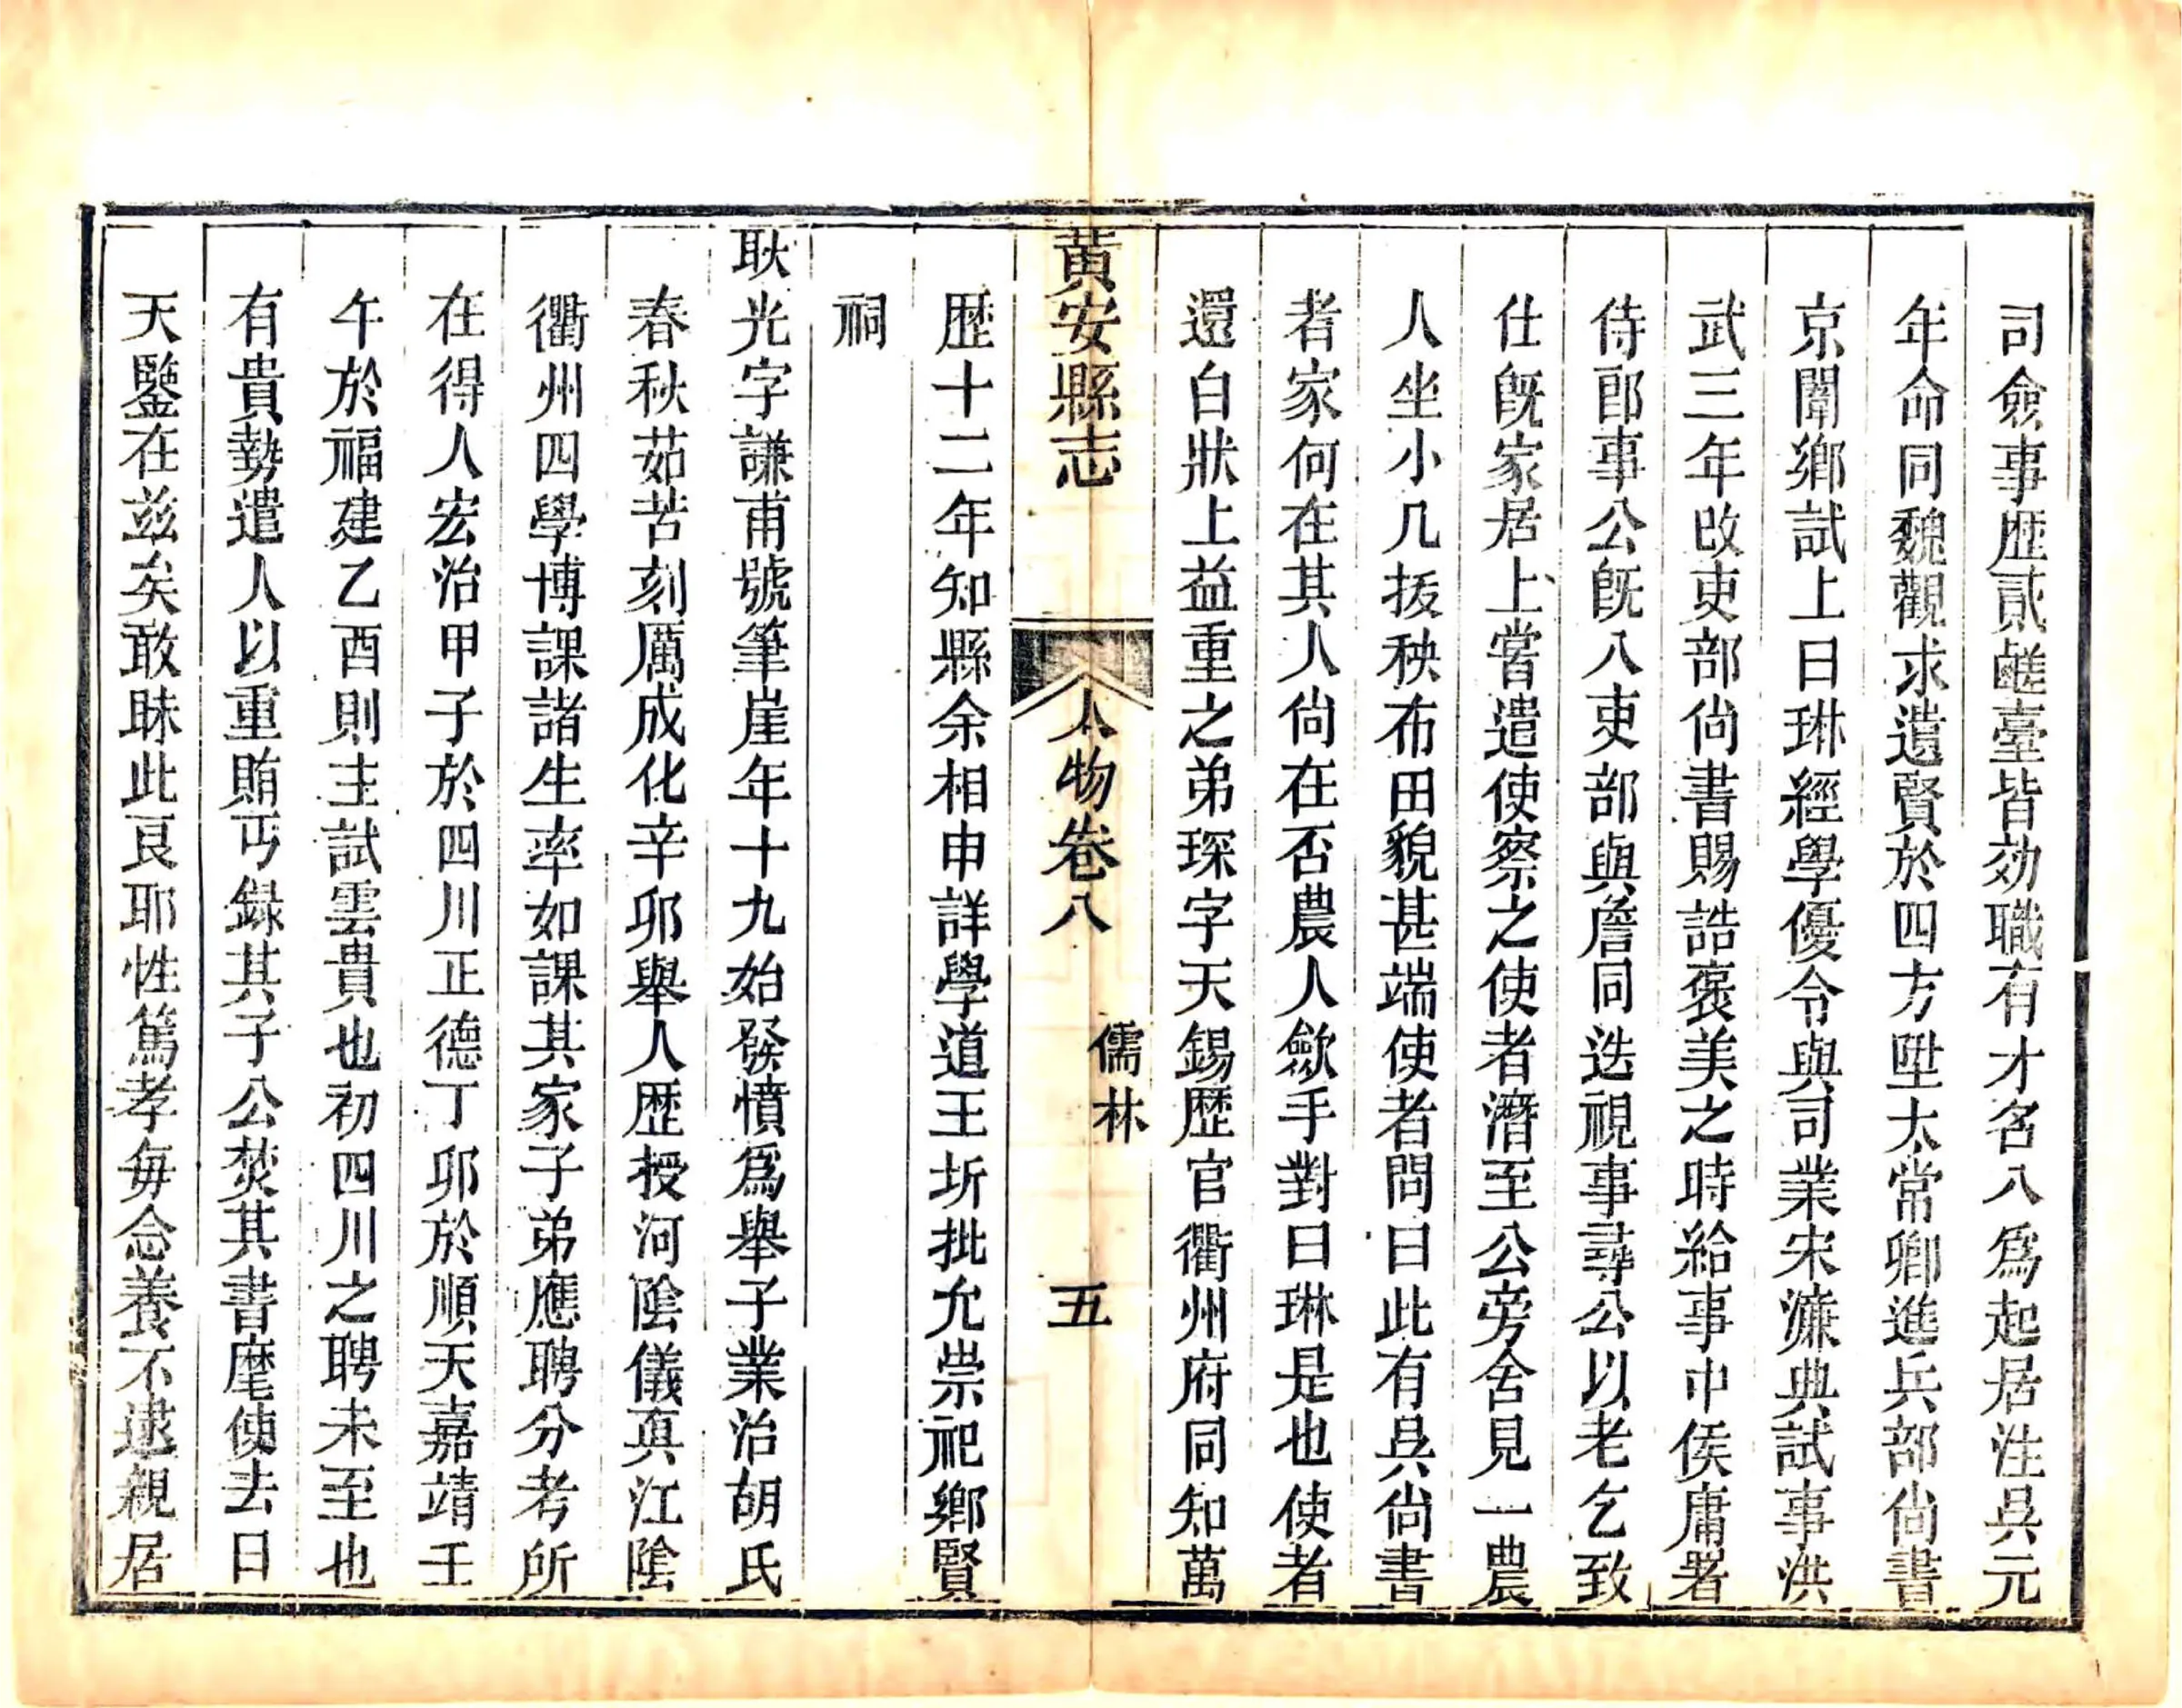 司僉事歴貳鹺臺皆効職有才名入爲起居注吳元
年命同魏觀求遺賢於四方陞太常卿進兵部尚書
京闈鄉試上曰琳經學優令與司業宋濂典試事洪
武三年改吏部尚書賜誥褒美之時給事中侯庸署
侍郎事公旣入吏部與詹同迭視事尋公以老乞致
仕旣家居上嘗遣使察之使者潛至公旁舍見一農
人坐小几拔秧布田貌甚端使者問曰此有吳尚書
者家何在其人尚在否農人歛手對曰琳是也使者
還白狀上益重之弟琛字天錫歴官衢州府同知萬
黃安縣志 人物卷八 儒林 五
歴十二年知縣余相申詳學道王圻批允崇祀鄉賢
祠
耿光字謙甫號筆崖年十九始發憤爲舉子業治胡氏
春秋茹苦刻厲成化辛卯舉人歴授河陰儀真江陰
衢州四學博課諸生率如課其家子弟應聘分考所
在得人宏治甲子於四川正德丁卯於順天嘉靖壬
午於福建乙酉則主試雲貴也初四川之聘未至也
有貴勢遣人以重賄丐録其子公焚其書麾使去曰
天鑒在兹矣敢昧此良耶性篤孝每念養不逮親居